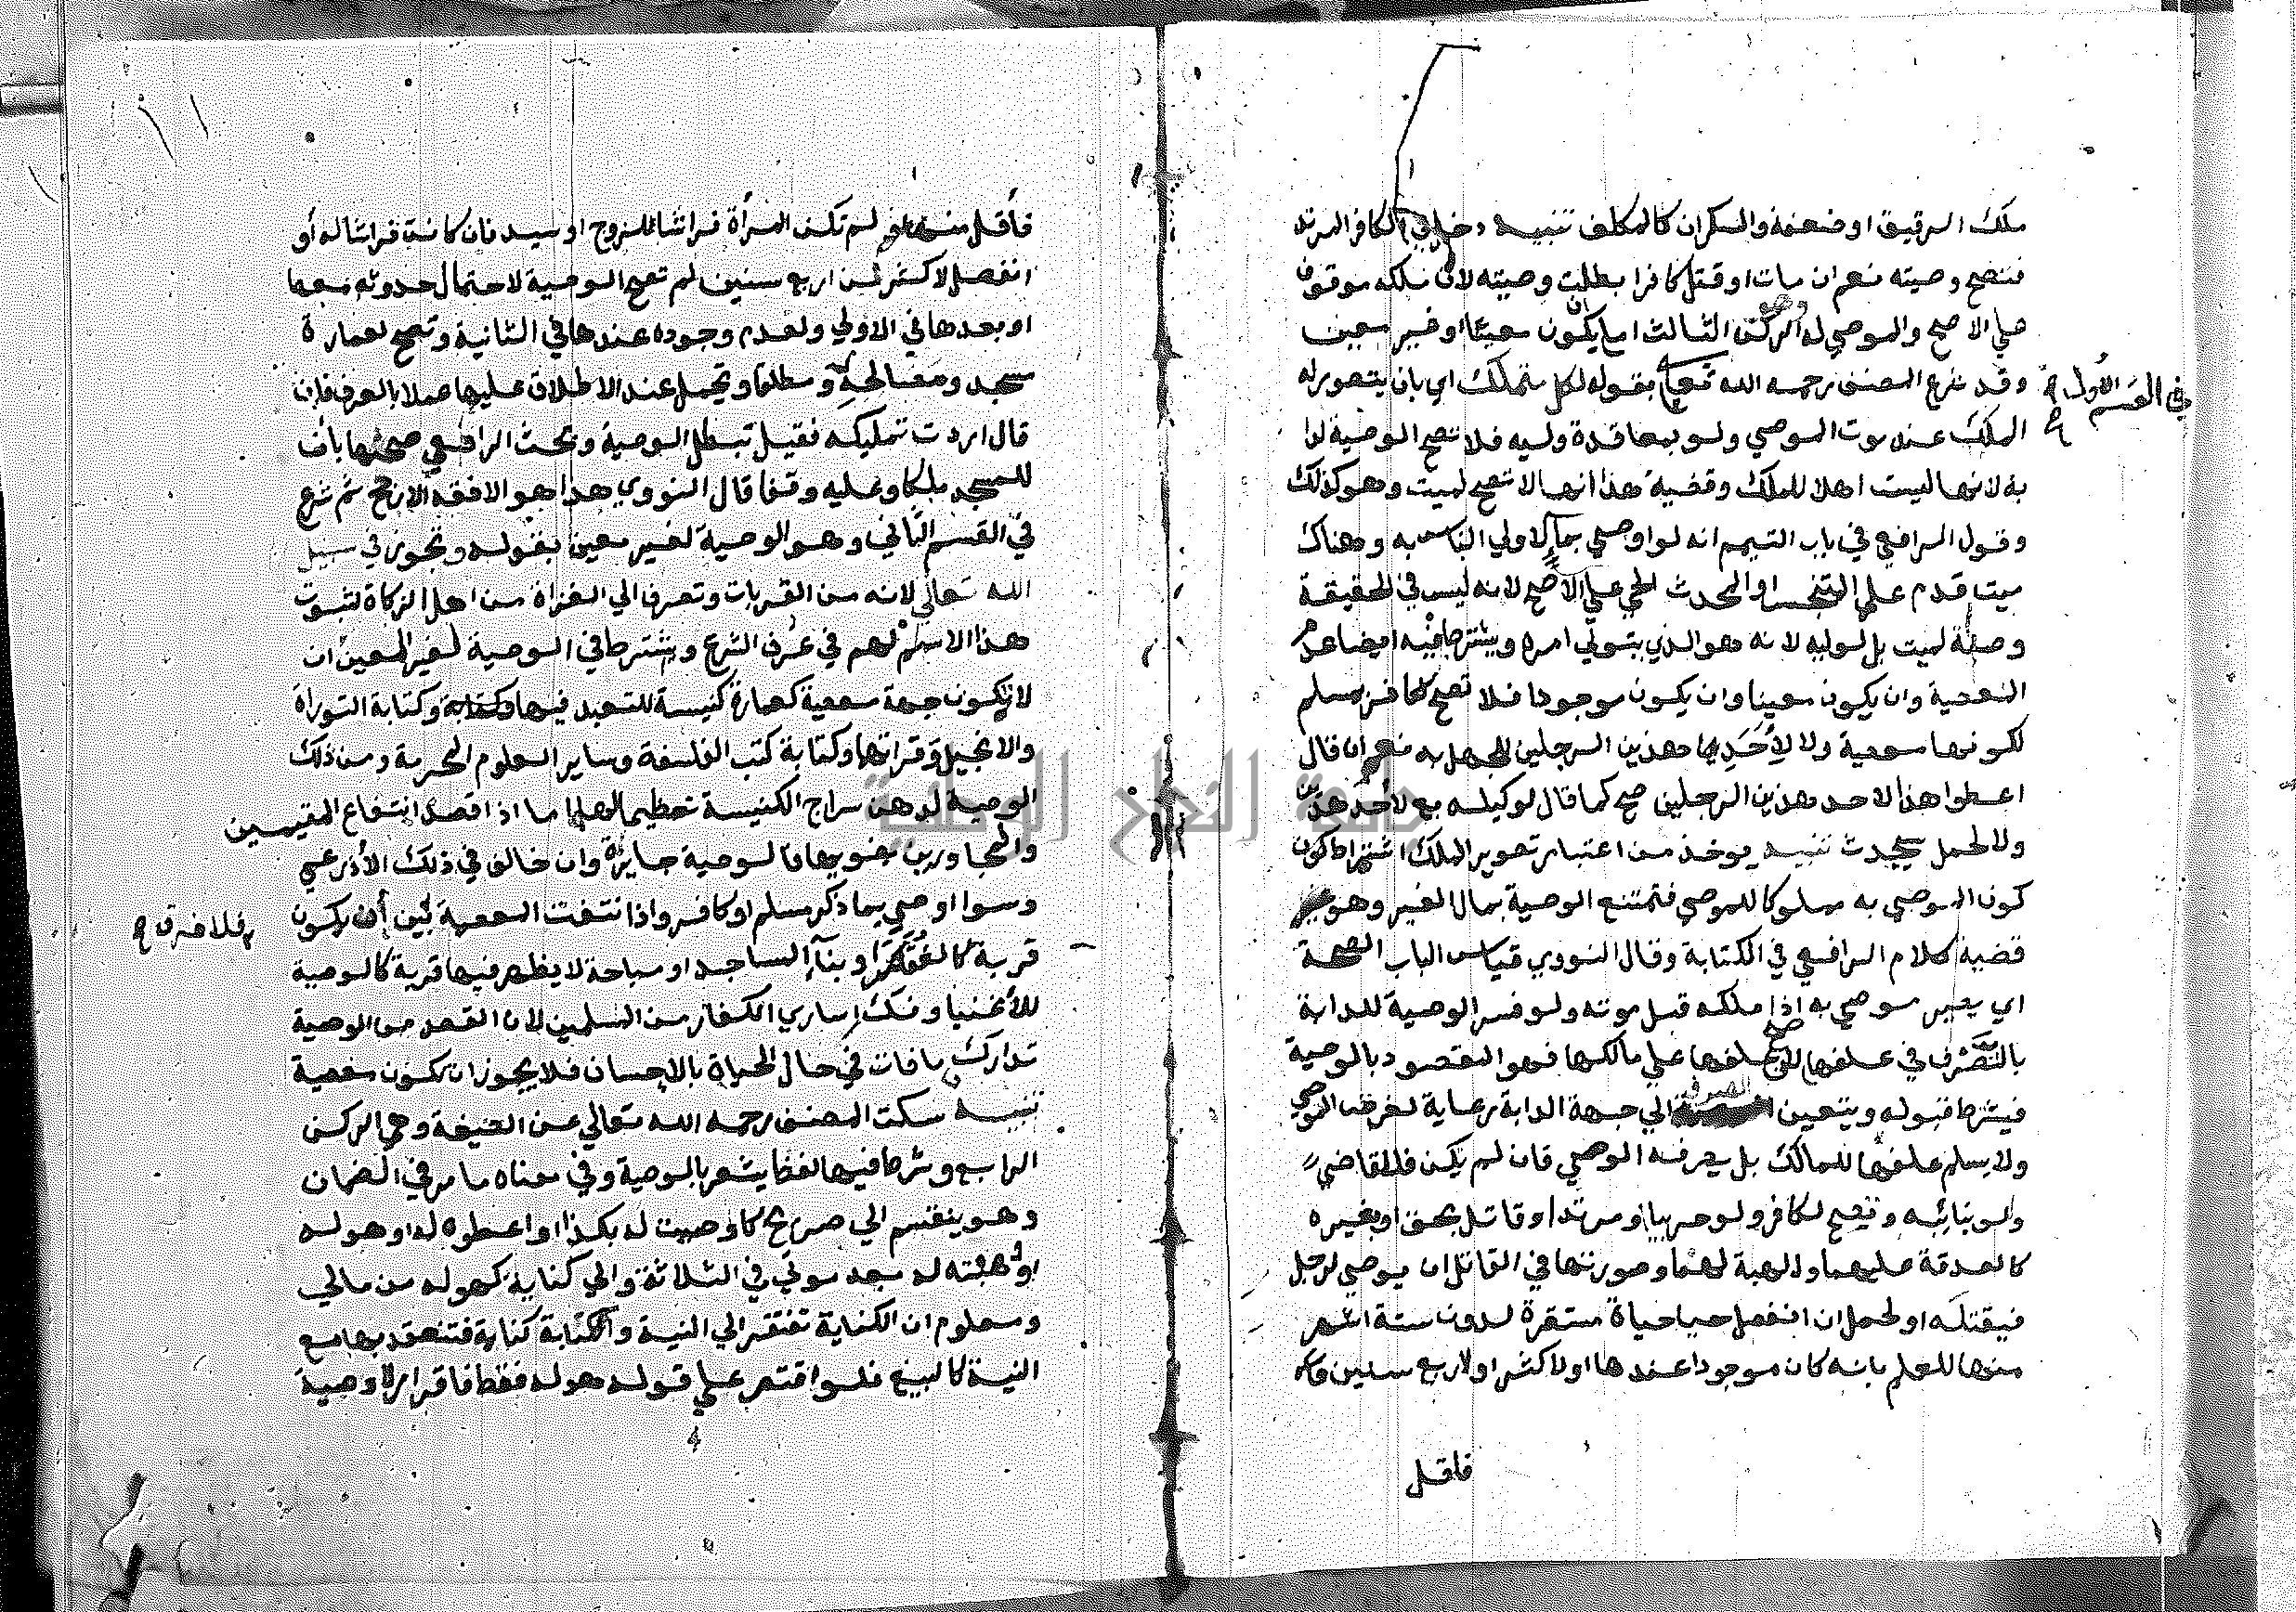 ملك الرقيق او ضعفه والسكران كالمكلف تنبيه دخل في الكافر المرتد
فتصح وصيته نعم ان مات او قتل كافرا بطلت وصيته لان ملكه موقوف
علي الاصح والموصي له وهو الركن الثالث اما ان يكون معينا او غير معين
وقد شرع المصنف رحمه الله تعالي بقوله لكل متملك اي بان يتصور له
في القسم الأول صح
الملك عند موت الموصي ولو بمعاقدة وليه فلا تصح الوصية لدا
بة لانها ليست اهلا للملك وقضية هذا انها لا تصح لميت وهو كذلك
وقول الرافعي في باب التيمم انه لو اوصي بماء لاولي الناس به وهناك
ميت قدم علي المتنجس او المحدث الحي علي الأصح لانه ليس في الحقيقة
وصية لميت بل لوليه لانه هو الذي يتولي امره ويشترط فيه ايضا عدم
المعصية وان يكون معينا وان يكون موجودا فلا تصح لكافر بمسلم
لكونها معصية ولا لأحد هذين الرجلين للجهل به نعم ان قال
اعطوا هذا لاحد هذين الرجلين صح كما قال لوكيله بع لأحد هذين
ولا لحمل سيحدث تنبيه يوخذ من اعتبار تصوير الملك اشتراط كون
كون الموصي به مملوكا للموصي فتمتنع الوصية بمال الغير وهو
قضية كلام الرافعي في الكتابة وقال النووي قياس الباب الصحة
اي يصير موصي به إذا ملكه قبل موته ولو فسر الوصية للدابة
بالتصرف في علفها صح لان علفها علي مالكها فهو المقصود بالوصية
فيشترط قبوله ويتعين الصرف الي جهة الدابة رعاية لغرض الموصي
ولا يسلم علفها للمالك بل يصرفه الوصي فان لم يكن فللقاضي
ولو بنائبه وتصح لكافر ولو حربيا او مرتدا وقاتل بحق او بغيره
كالصدقة عليهما والهبة لهما وصورتها في القاتل ان يوصي لرجل
فيقتله او لحمل ان انفصل حيا حياة مستقرة لدون ستة اشهر
منها للعلم بانه كان موجودا عندها او لاكثر او لاربع سنين
فاقل
فأقل منها ولم تكن المرأة فراشا للزوج او سيد فان كانت فراشا له أو
انفصل لاكثر من اربع سنين لم تصح الوصية لاحتمال حدوثه معها
او بعدها في الاولي ولعدم وجوده عندها في الثانية وتصح لعمارة
مسجد ومصالحه ومطلقا وتحمل عند الاطلاق عليها عملا بالعرف فان
قال اردت تمليكه فقيل تبطل الوصية وبحث الرافعي صحتها بأن
للمسجد ملكا وعليه وقفا قال النووي هذا هو الافقه الارجح ثم شرع
في القسم الثاني وهو الوصية لغير معين بقوله وتجوز في سبيل
الله تعالي لانه من القربات وتصرف الي الغزاة من اهل الزكاة لثبوت
هذا الاسم لهم في عرف الشرع ويشترط في الوصية لغير المعين ان
لا تكون جهة معصية كعمارة كنيسة للتعبد فيها وكتابة التوراة
والانجيل وقراتهما وكتابة كتب الفلسفة وساير العلوم المحرمة ومن ذلك
الوصية لدهن سراج الكنيسة تعظيما لها اما اذا قصد انتفاع المقيمين
والمجاورين بضويها فالوصية جايزة وان خالف في ذلك الأذرعي
وسوا اوصي بما ذكر مسلم او كافر واذا انتفت المعصية بين أن يكون
فلا فرق صح
قربة كالفقراء وبناء المساجد او مباحة لا يظهر فيها قربة كالوصية
للأغنيا وفك اساري الكفار من المسلمين لان القصد من الوصية
تدارك ما فات في حال الحياة بالاحسان فلا يجوز ان تكون معصية
تنبيه سكت المصنف رحمه الله تعالي عن الصيغة وهي الركن
الرابع وشرط فيها لفظ يشعر بالوصية وفي معناه ما مر في الضمان
وهو ينقسم الي صريح كاوصيت له بكذا او اعطوه له او هو له
او وهبته له بعد موتي في الثلاثة والي كناية كهو له من مالي
ومعلوم ان الكناية تفتقر الي النية والكتابة كناية فتنعقد بها مع
النية كالبيع فلو اقتصر علي قوله هو له فقط فاقرار لا وصية